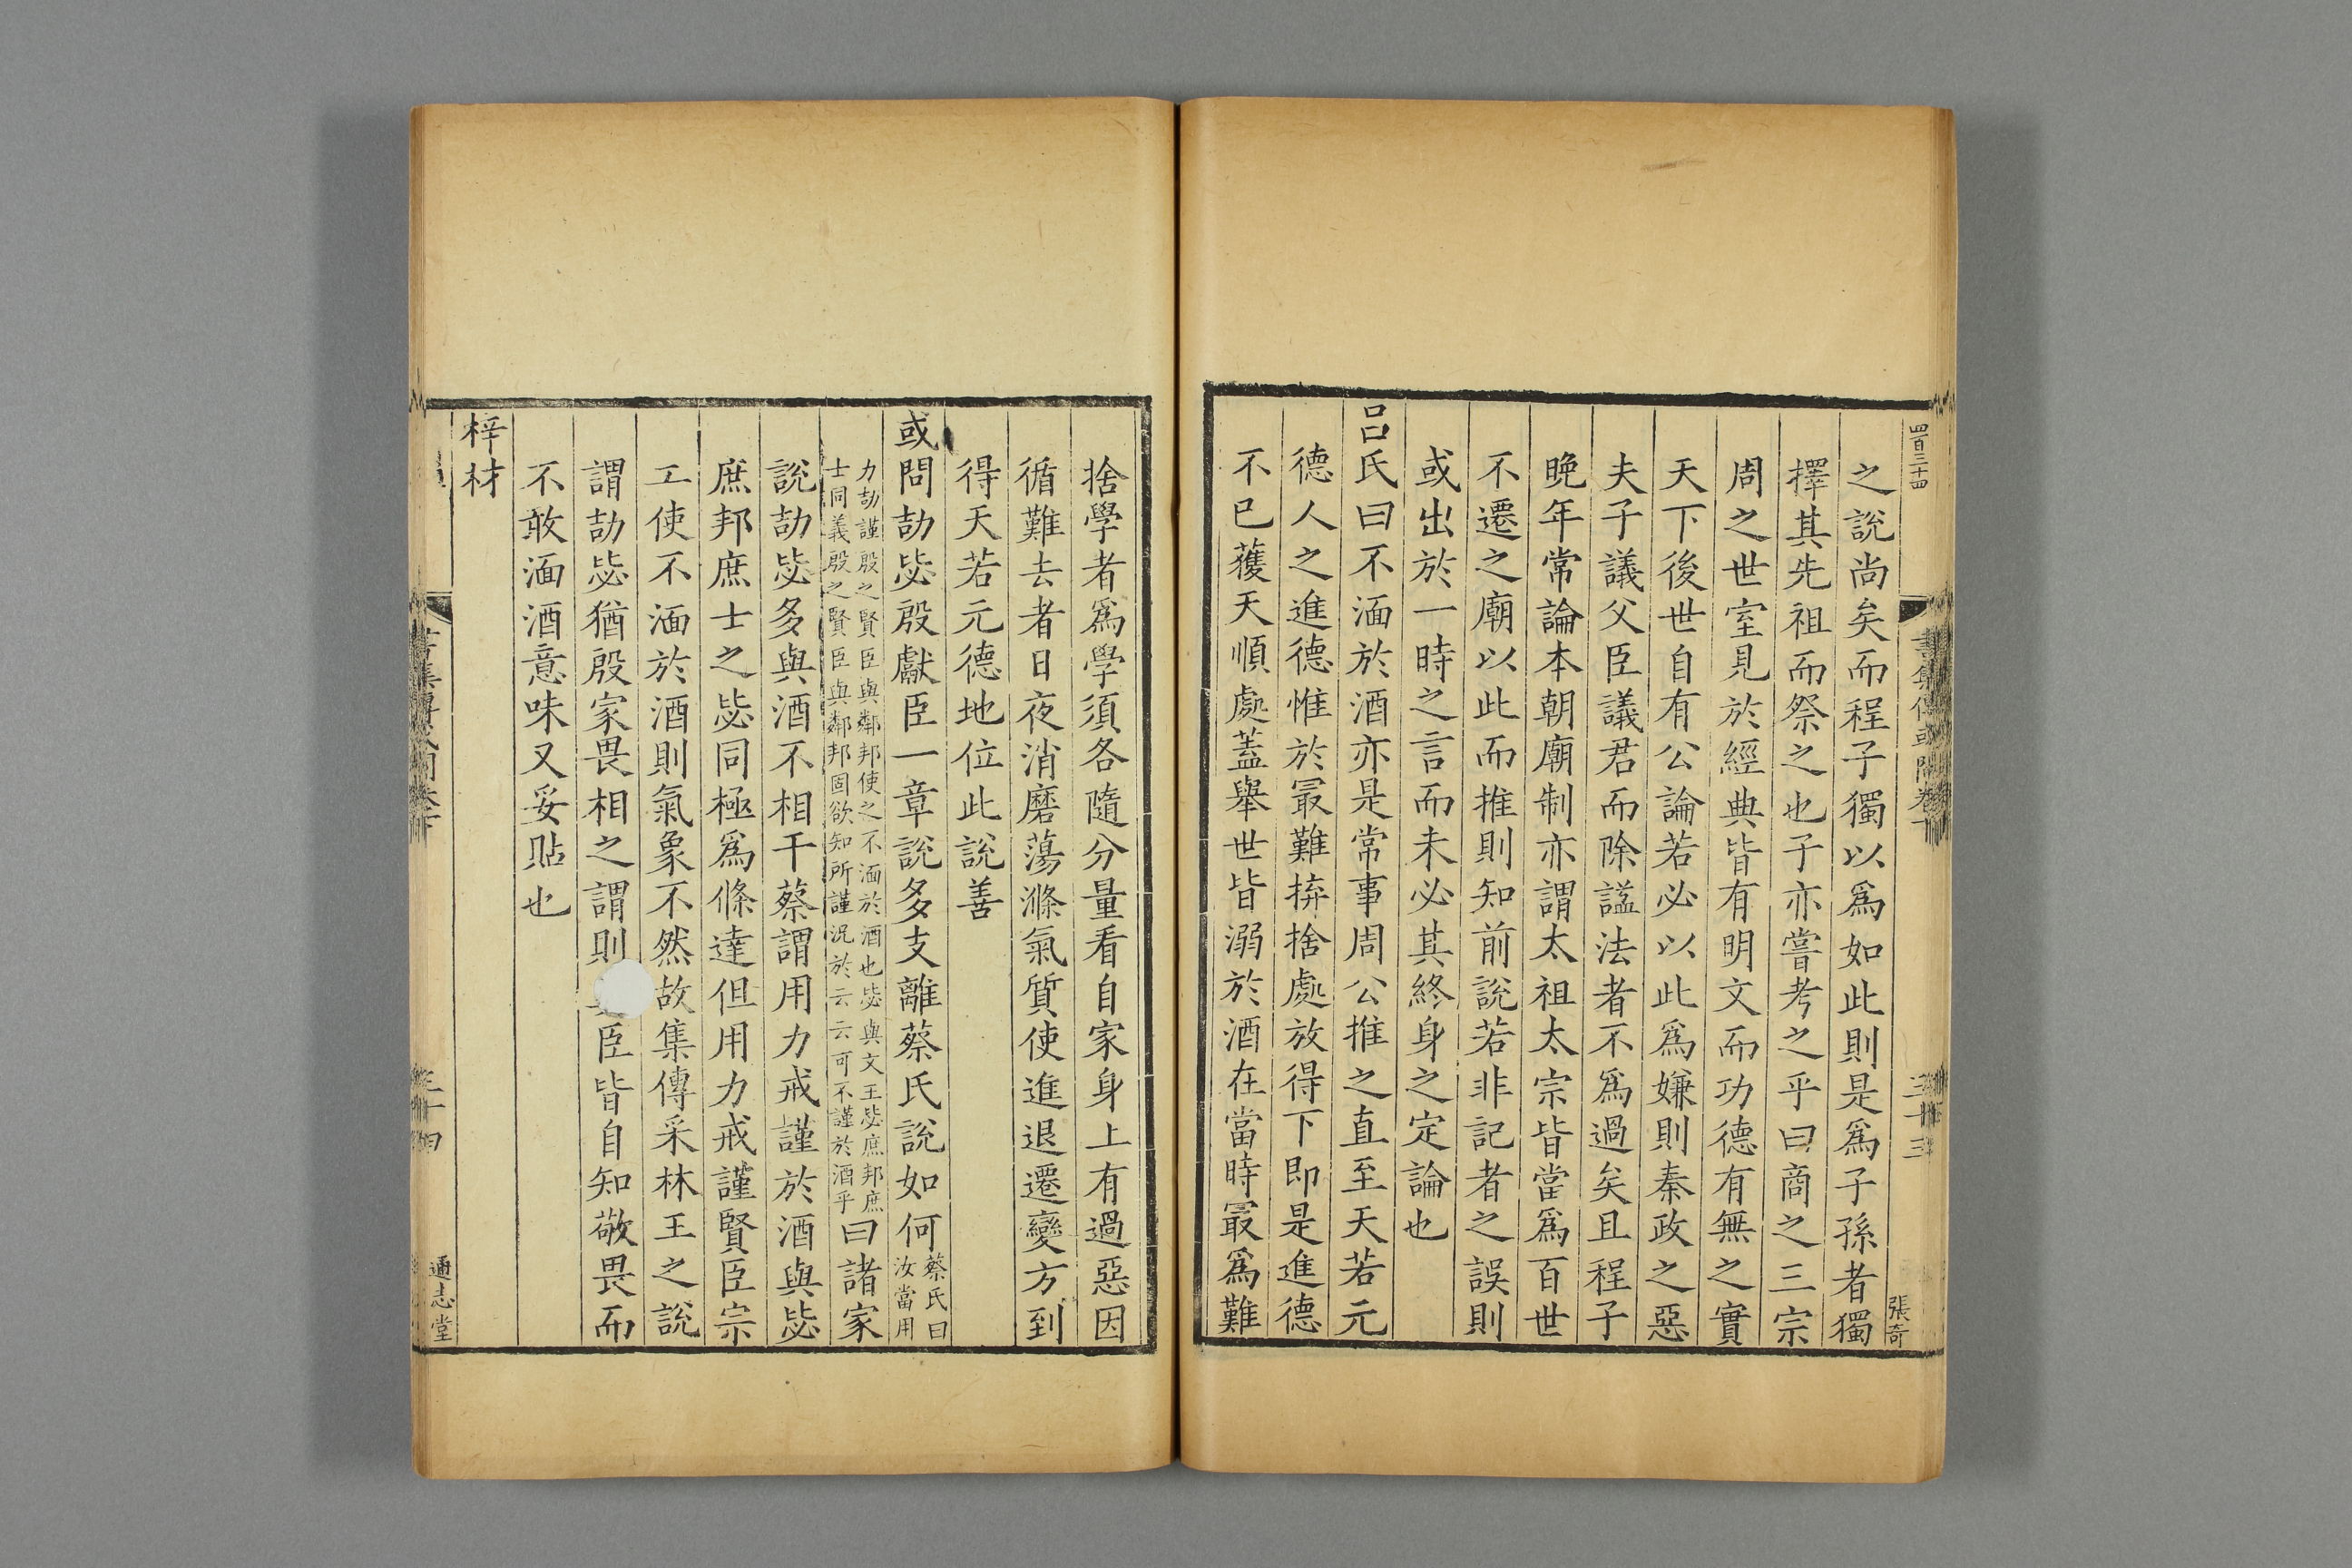 四百三十四
書集傳或問卷下
三十三
張奇
之說尚矣而程子獨以爲如此則是爲子孫者獨
擇其先祖而祭之也子亦嘗考之乎曰商之三宗
周之世室見於經典皆有明文而功德有無之實
天下後世自有公論若必以此爲嫌則秦政之惡
夫子議父臣議君而除諡法者不爲過矣且程子
晚年常論本朝廟制亦謂太祖太宗皆當爲百世
不遷之廟以此而推則知前說若非記者之誤則
或出於一時之言而未必其終身之定論也
呂氏曰不湎於酒亦是常事周公推之直至天若元
德人之進德惟於冣難捹捨處放得下即是進德
不已獲天順處蓋舉世皆溺於酒在當時冣爲難
捨學者爲學須各隨分量看自家身上有過惡因
循難去者日夜消磨蕩滌氣質使進退遷變方到
得天若元德地位此說善
或問劼毖殷獻臣一章說多支離蔡氏說如何蔡氏曰汝當用
力劼謹殷之賢臣與鄰邦使之不湎於酒也毖與文王毖庶邦庶
士同義殷之賢臣與鄰邦固欲知所謹況於云云可不謹於酒乎曰諸家
說劼毖多與酒不相干蔡謂用力戒謹於酒與毖
庶邦庶士之毖同極爲條達但用力戒謹賢臣宗
工使不湎於酒則氣象不然故集傳采林王之說
謂劼毖猶殷家畏相之謂則臣皆自知敬畏而
不敢湎酒意味又妥貼也
梓材
三十四
通志堂